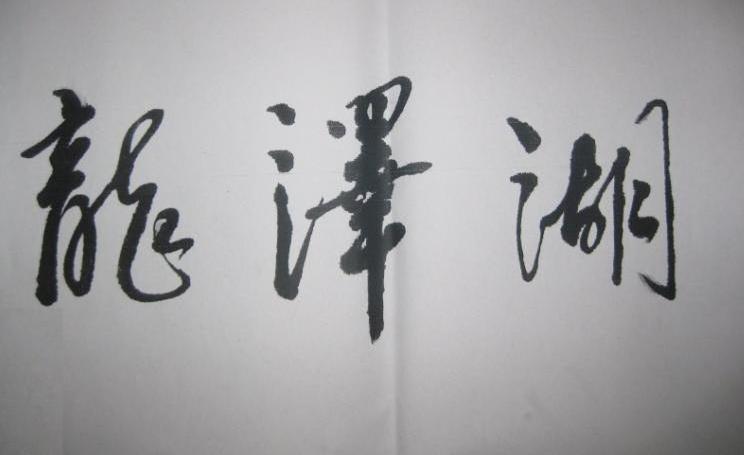 龍澤湖